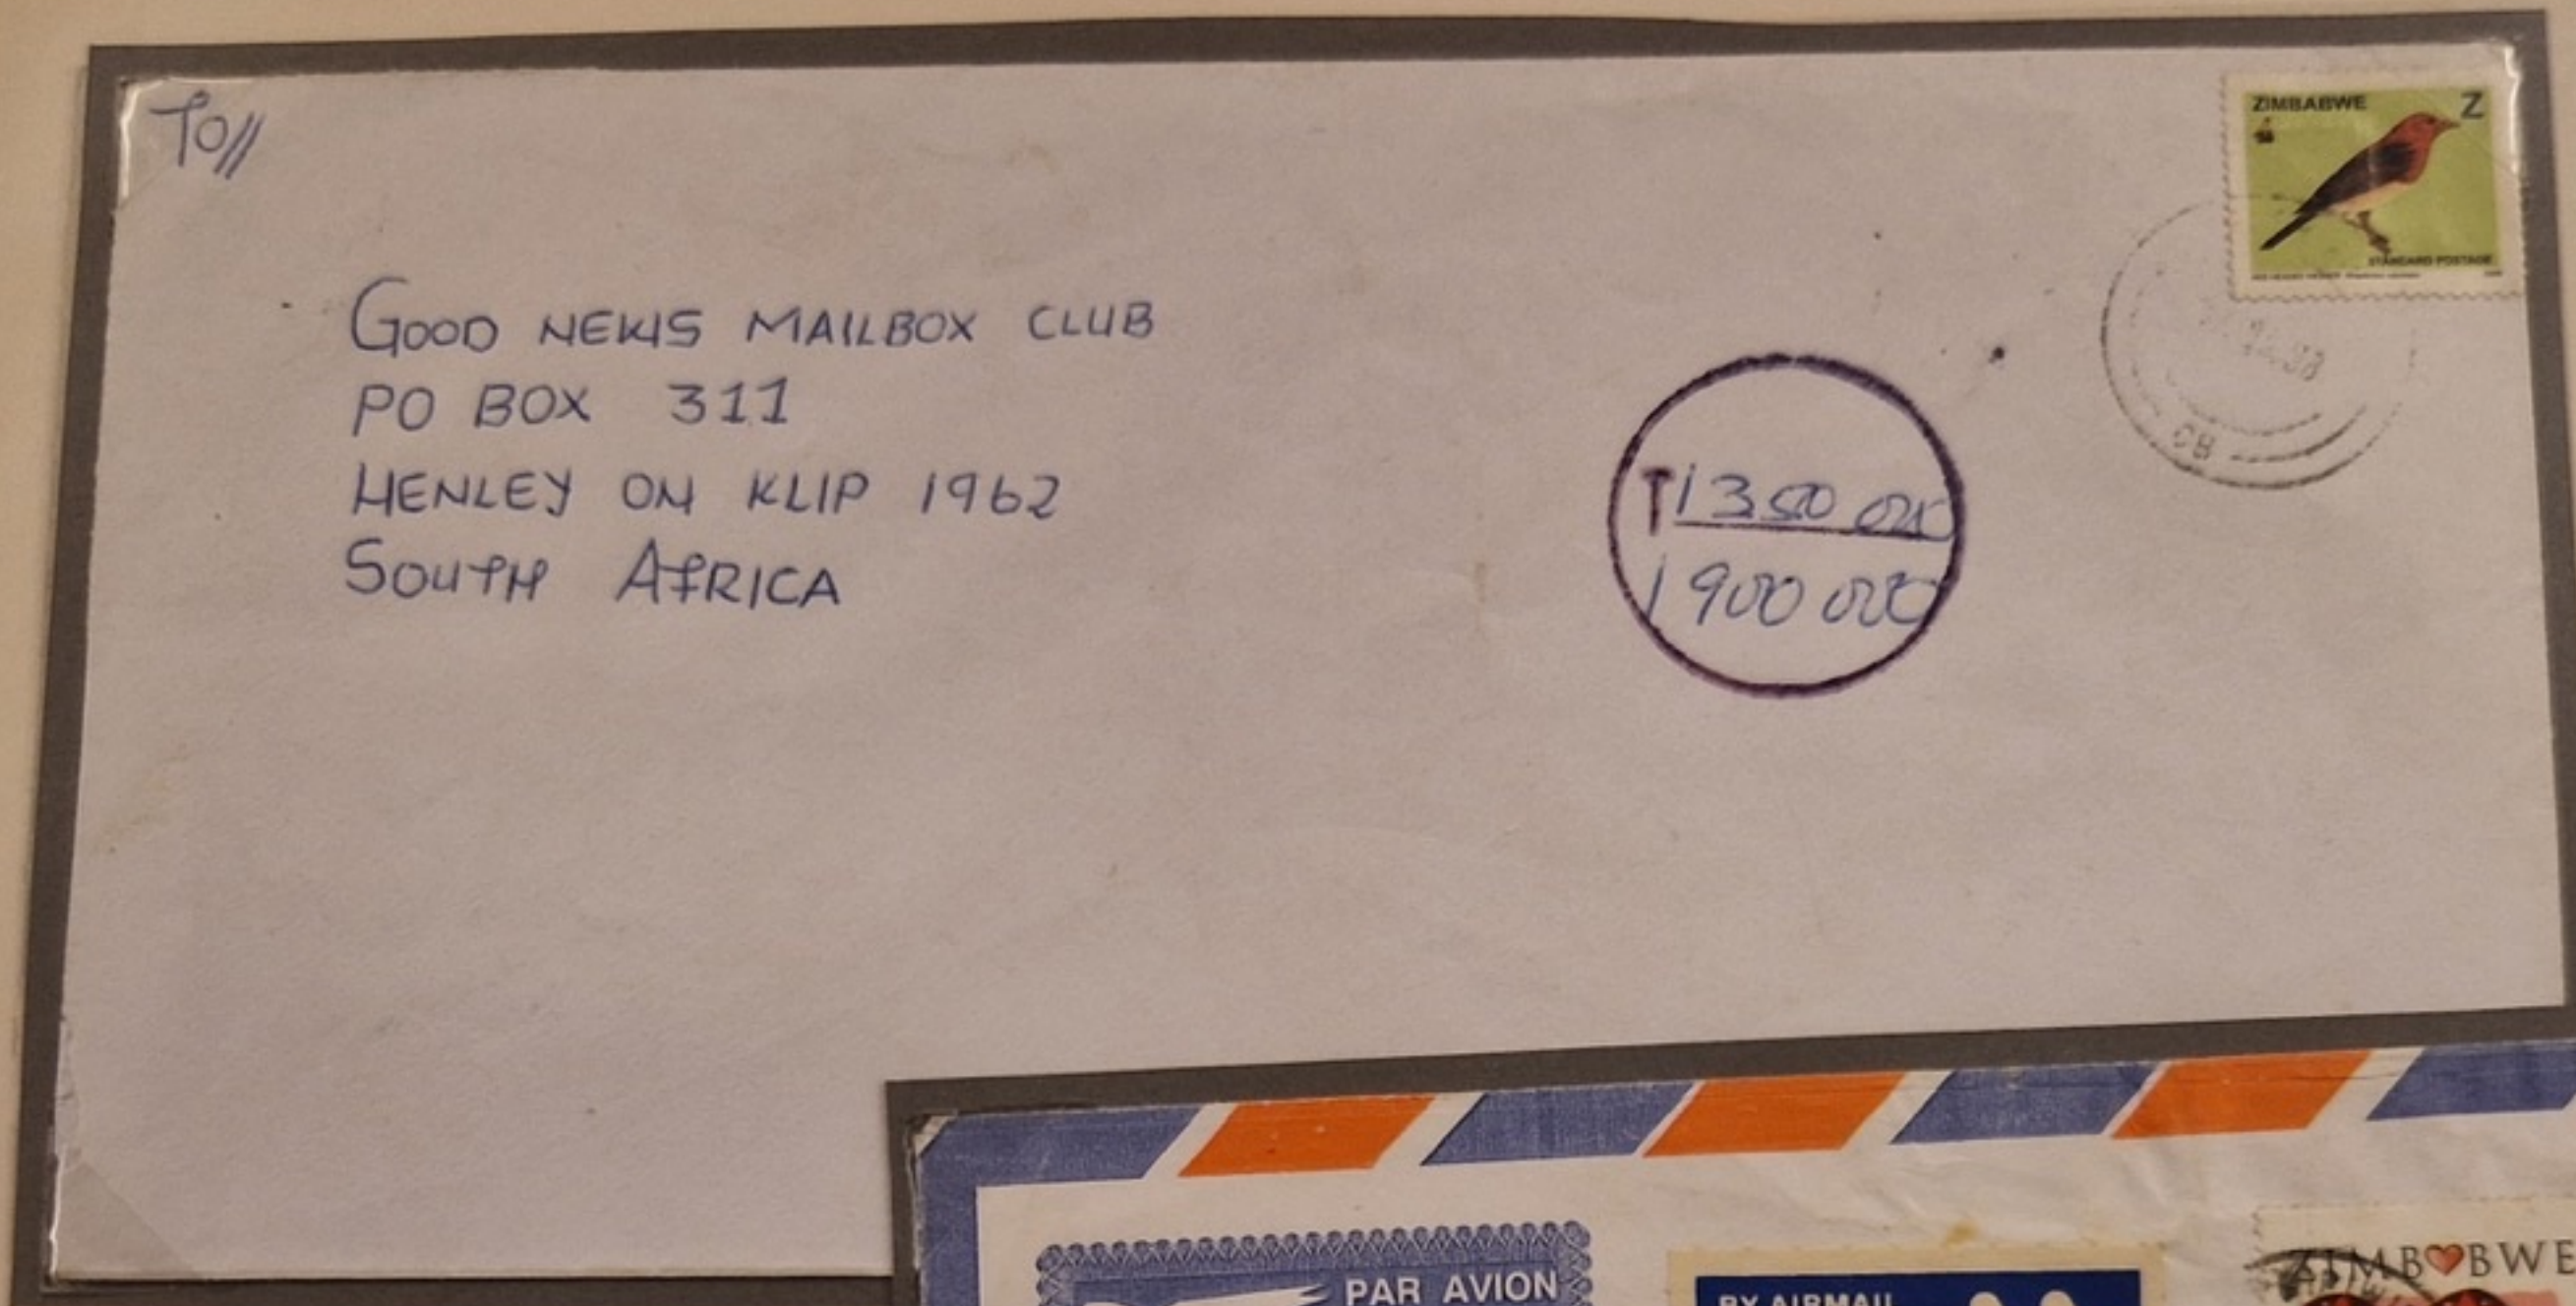 To//
ZIMBABWE Z
STANDARD POSTAGE
GOOD NEWS MAILBOX CLUB
PO BOX 311
HENLEY ON KLIP 1962
SOUTH AFRICA
T 1 350 000
1 900 000
CB
PAR AVION
BY AIRMAIL
ZIMB❤BWE